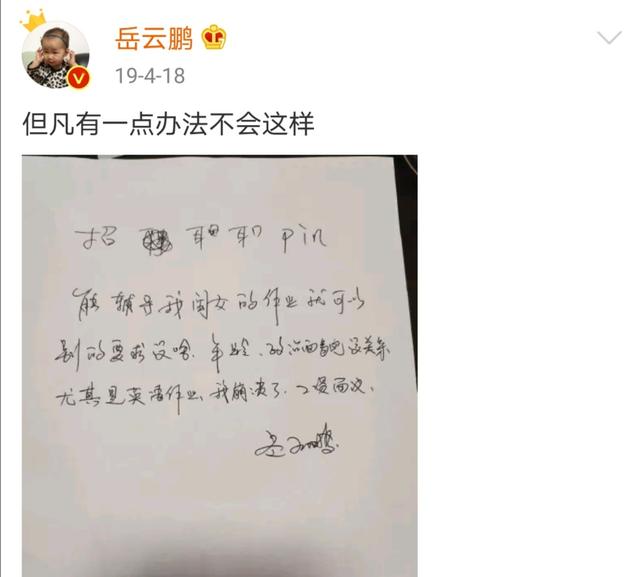 岳云鹏
19-4-18
但凡有一点办法不会这样
招 职 职 Pin
能辅导我闺女的作业就可以
别的要求没啥.年龄、政治面貌没关系
尤其是英语作业,我崩溃了.工资面议.
岳云鹏.